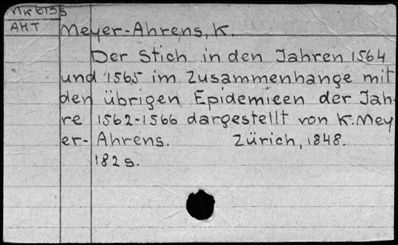 MK6155
AHT
Meyer-Ahrens, K.
Der Stich in den Jahren 1564
und 1565 im Zusammenhange mit
den übrigen Epidemieen der Jah-
re 1562-1566 dargestellt von K. Mey
er-Ahrens. Zürich, 1848.
182s.